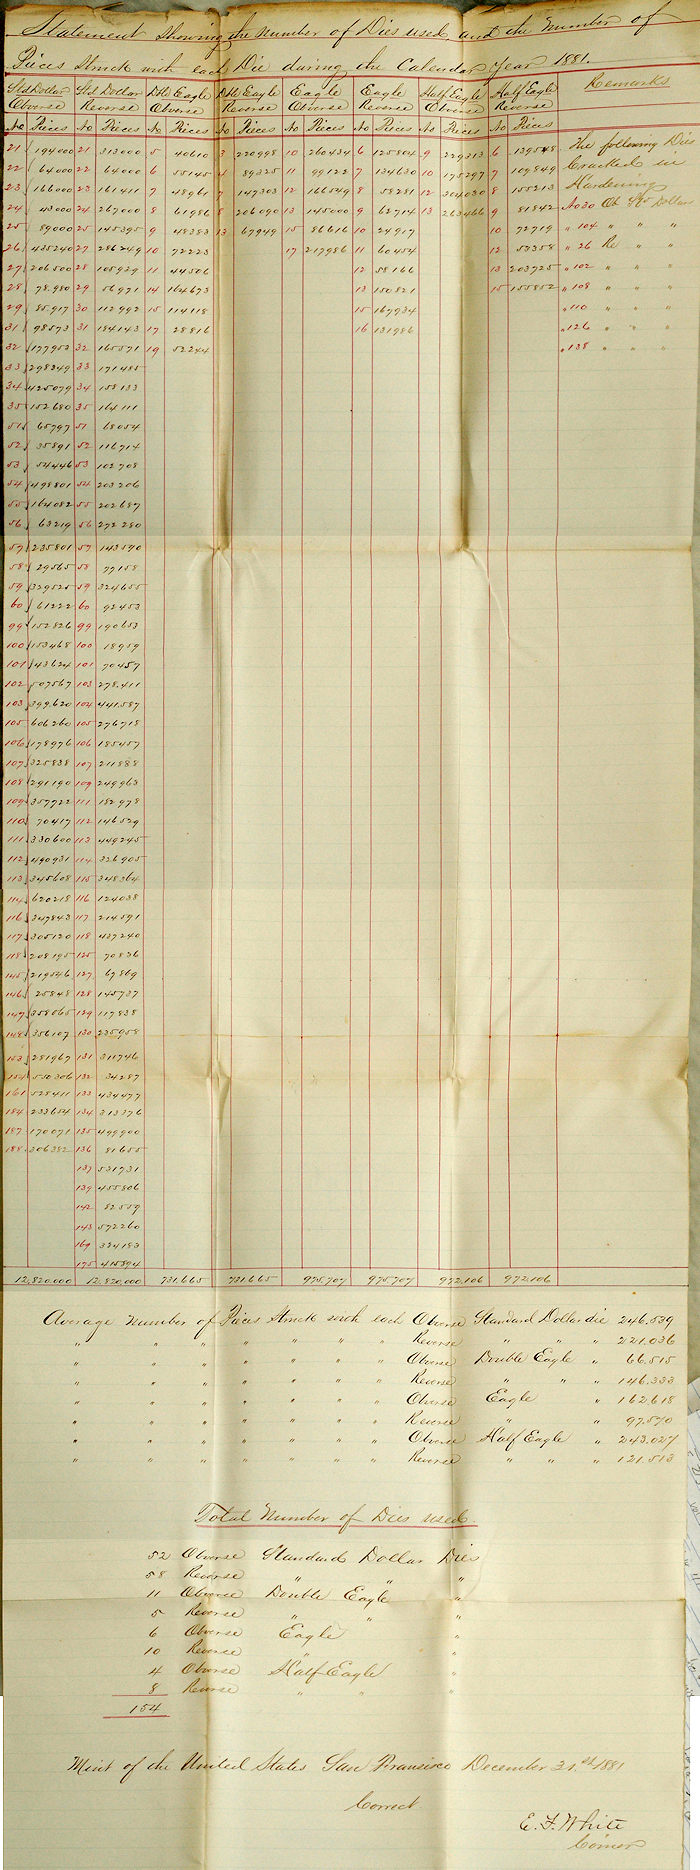 Statement showing the number of Dies used and the number of
Pieces Struck with each Die during the Calendar Year 1881.
Std Dollar Std Dollar Dble Eagle Dble Eagle Eagle Eagle Half Eagle Half Eagle Remarks
Obverse Reverse Obverse Reverse Obverse Reverse Obverse Reverse
No Pieces No Pieces No Pieces No Pieces No Pieces No Pieces No Pieces No Pieces
21 194000 21 313000 5 40610 3 220998 10 260434 6 125804 9 229313 6 139548 The following Dies
22 64000 22 64000 6 55145 4 89325 11 99122 7 134630 10 175297 7 109849 Cracked in
23 166000 23 161411 7 48961 7 147303 12 166549 8 58281 12 304030 8 155213 Hardening
24 43000 24 267000 8 61986 8 206090 13 145000 9 62714 13 263466 9 81842 No 30 Ob Std Dollar
25 89000 25 145395 9 48383 13 67949 15 86616 10 24917 10 72719 " 104 " " "
26 435240 27 286249 10 72223 17 217986 11 60454 12 53358 " 26 Re " "
27 206500 28 105929 11 44506 12 58166 13 203725 " 102 " " "
28 78980 29 56971 14 164673 13 150821 15 155852 " 108 " " "
29 85917 30 112992 15 114118 15 167934 " 110 " " "
31 98573 31 184143 17 28816 16 131986 " 126 " " "
32 177953 32 165571 19 52244 " 138 " " "
33 298349 33 171485
34 425079 34 158133
35 152680 35 164111
51 65797 51 68054
52 35891 52 116714
53 54446 53 102708
54 498801 54 203206
55 164082 55 202687
56 63219 56 272280
57 235801 57 143590
58 29565 58 77158
59 329525 59 324655
60 61222 60 92453
99 152826 99 190653
100 153468 100 18959
101 43624 101 70457
102 507567 103 278411
103 399620 104 441587
105 606260 105 276718
106 178976 106 185457
107 325838 107 211888
108 291190 109 249963
109 357722 111 182978
110 70417 112 146529
111 330600 113 449245
112 490931 114 326905
113 345608 115 348364
114 620218 116 124038
116 347843 117 214591
117 305120 118 437240
118 208195 125 70836
145 219546 127 67869
146 25848 128 145737
147 358065 129 117838
148 356107 130 235958
153 281967 131 311746
154 550306 132 34287
161 528411 133 434477
184 233654 134 313376
187 170071 135 499900
188 306382 136 81655
137 531731
139 455806
142 82559
143 572260
169 384183
175 415894
12,820,000 12,820,000 731,665 731,665 975,707 975,707 972,106 972,106
Average number of Pieces Struck with each Obverse Standard Dollar die 246.539
" " " " " " " Reverse " " " 221.036
" " " " " " " Obverse Double Eagle " 66.515
" " " " " " " Reverse " " " 146.333
" " " " " " " Obverse Eagle " 162.618
" " " " " " " Reverse " " 97.570
" " " " " " " Obverse Half Eagle " 243.027
" " " " " " " Reverse " " " 121.513
Total Number of Dies used.
52 Obverse Standard Dollar Dies
58 Reverse " " "
11 Obverse Double Eagle "
5 Reverse " " "
6 Obverse Eagle "
10 Reverse " "
4 Obverse Half Eagle "
8 Reverse " " "
154
Mint of the United States San Francisco December 31st 1881
Correct
E. F. White
Coiner